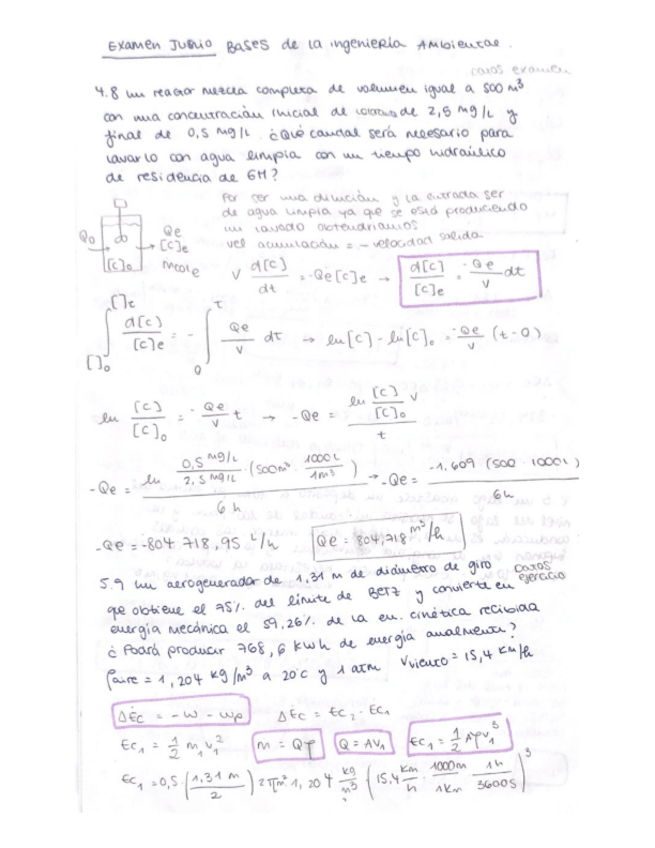 Examen Junio Bases de la ingeniería Ambiental.
casos examen
4.8 un reactor mezcla completa de volumen igual a 500 m³
con una concentración inicial de de 2,5 mg/L y
final de 0,5 mg/L ¿Qué caudal será necesario para
lavarlo con agua limpia con un tiempo hidraúlico
de residencia de 6H?
Por ser una dilución y la entrada ser
de agua limpia ya que se está produciendo
un lavado obtendríamos
vel acumulación = - velocidad salida
Qo Qe [C]e [C]o
V d[C]/dt = -Qe[C]e → d[C]/[C]e = -Qe/V dt
∫[]o []t d[C]/[C]e = - ∫0 t Qe/V dt → ln[C] - ln[C]o = -Qe/V (t-0)
ln [C]/[C]o = -Qe/V t → -Qe = ln [C]/[C]o V / t
-Qe = ln 0,5 mg/L / 2,5 mg/L · (500m³ · 1000L/1m³) / 6h → -Qe = -1,609 (500 · 1000L) / 6h
-Qe = -804 718,95 L/h Qe = 804,718 m³/h
5.9 un aerogenerador de 1,31 m de diámetro de giro
casos ejercicio
que obtiene el 75% del límite de BETZ y convierte en
energía mecánica el 59,26% de la en. cinética recibida
¿Podrá producir 768,6 kWh de energía anualmente?
ρaire = 1,204 kg/m³ a 20°C y 1 atm Vviento = 15,4 km/h
ΔEc = -W - Wp ΔEc = Ec2 - Ec1
Ec1 = 1/2 m1 v1² m = Qρ Q = AV1 Ec1 = 1/2 Aρv1³
Ec1 = 0,5 · (1,31 m / 2)² πm² 1,204 kg/m³ (15,4 km/h · 1000m/1km · 1h/3600s)³